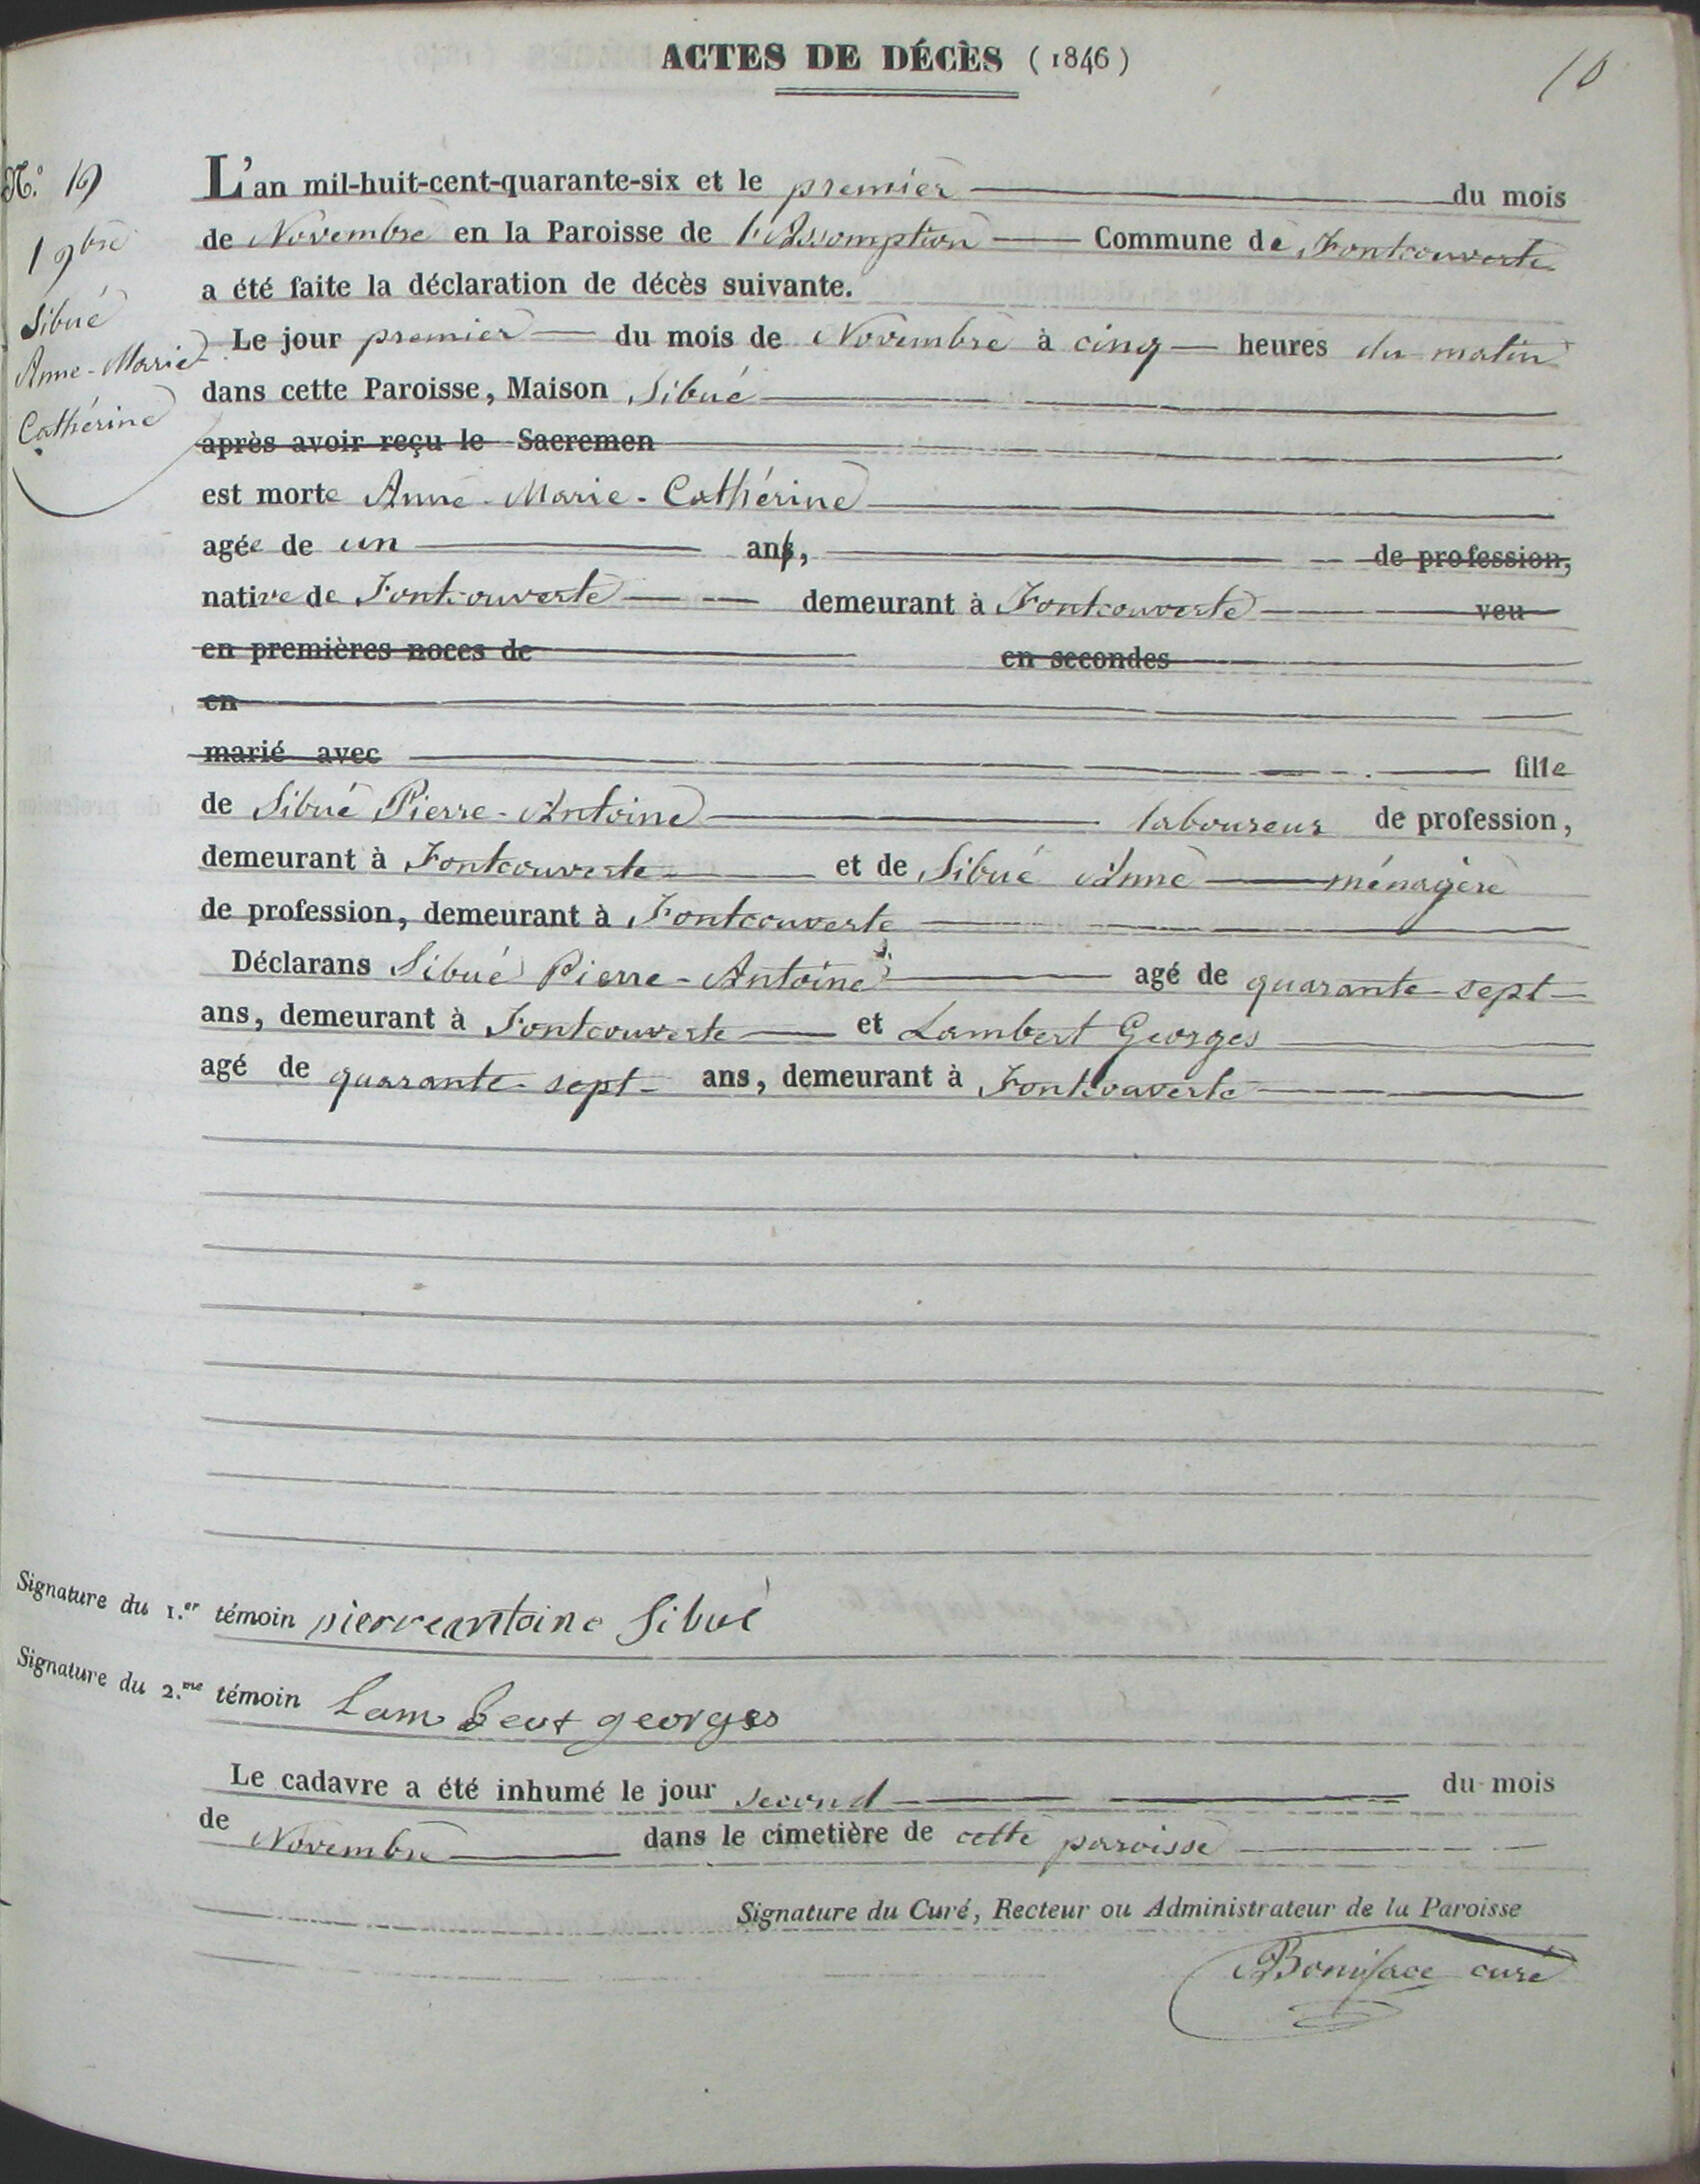 ACTES DE DÉCÈS (1846)
10
N.° 19
1 9bre
Sibué
Anne-Marie
Cathérine
L'an mil-huit-cent-quarante-six et le premier du mois
de Novembre en la Paroisse de l'Assomption Commune de Fontcouverte
a été faite la déclaration de décès suivante.
Le jour premier du mois de Novembre à cinq heures du matin
dans cette Paroisse, Maison Sibué
après avoir reçu le Sacremen
est morte Anne-Marie-Cathérine
agée de un ans, de profession,
native de Fontcouverte demeurant à Fontcouverte veu
en premières noces de en secondes
en
marié avec fille
de Sibué Pierre-Antoine laboureur de profession,
demeurant à Fontcouverte et de Sibué Anne ménagère
de profession, demeurant à Fontcouverte
Déclarans Sibué Pierre-Antoine agé de quarante-sept
ans, demeurant à Fontcouverte et Lambert Georges
agé de quarante-sept ans, demeurant à Fontcouverte
Signature du 1.er témoin pierreantoine Sibué
Signature du 2.me témoin Lambert georges
Le cadavre a été inhumé le jour second du mois
de Novembre dans le cimetière de cette paroisse
Signature du Curé, Recteur ou Administrateur de la Paroisse
Boniface curé